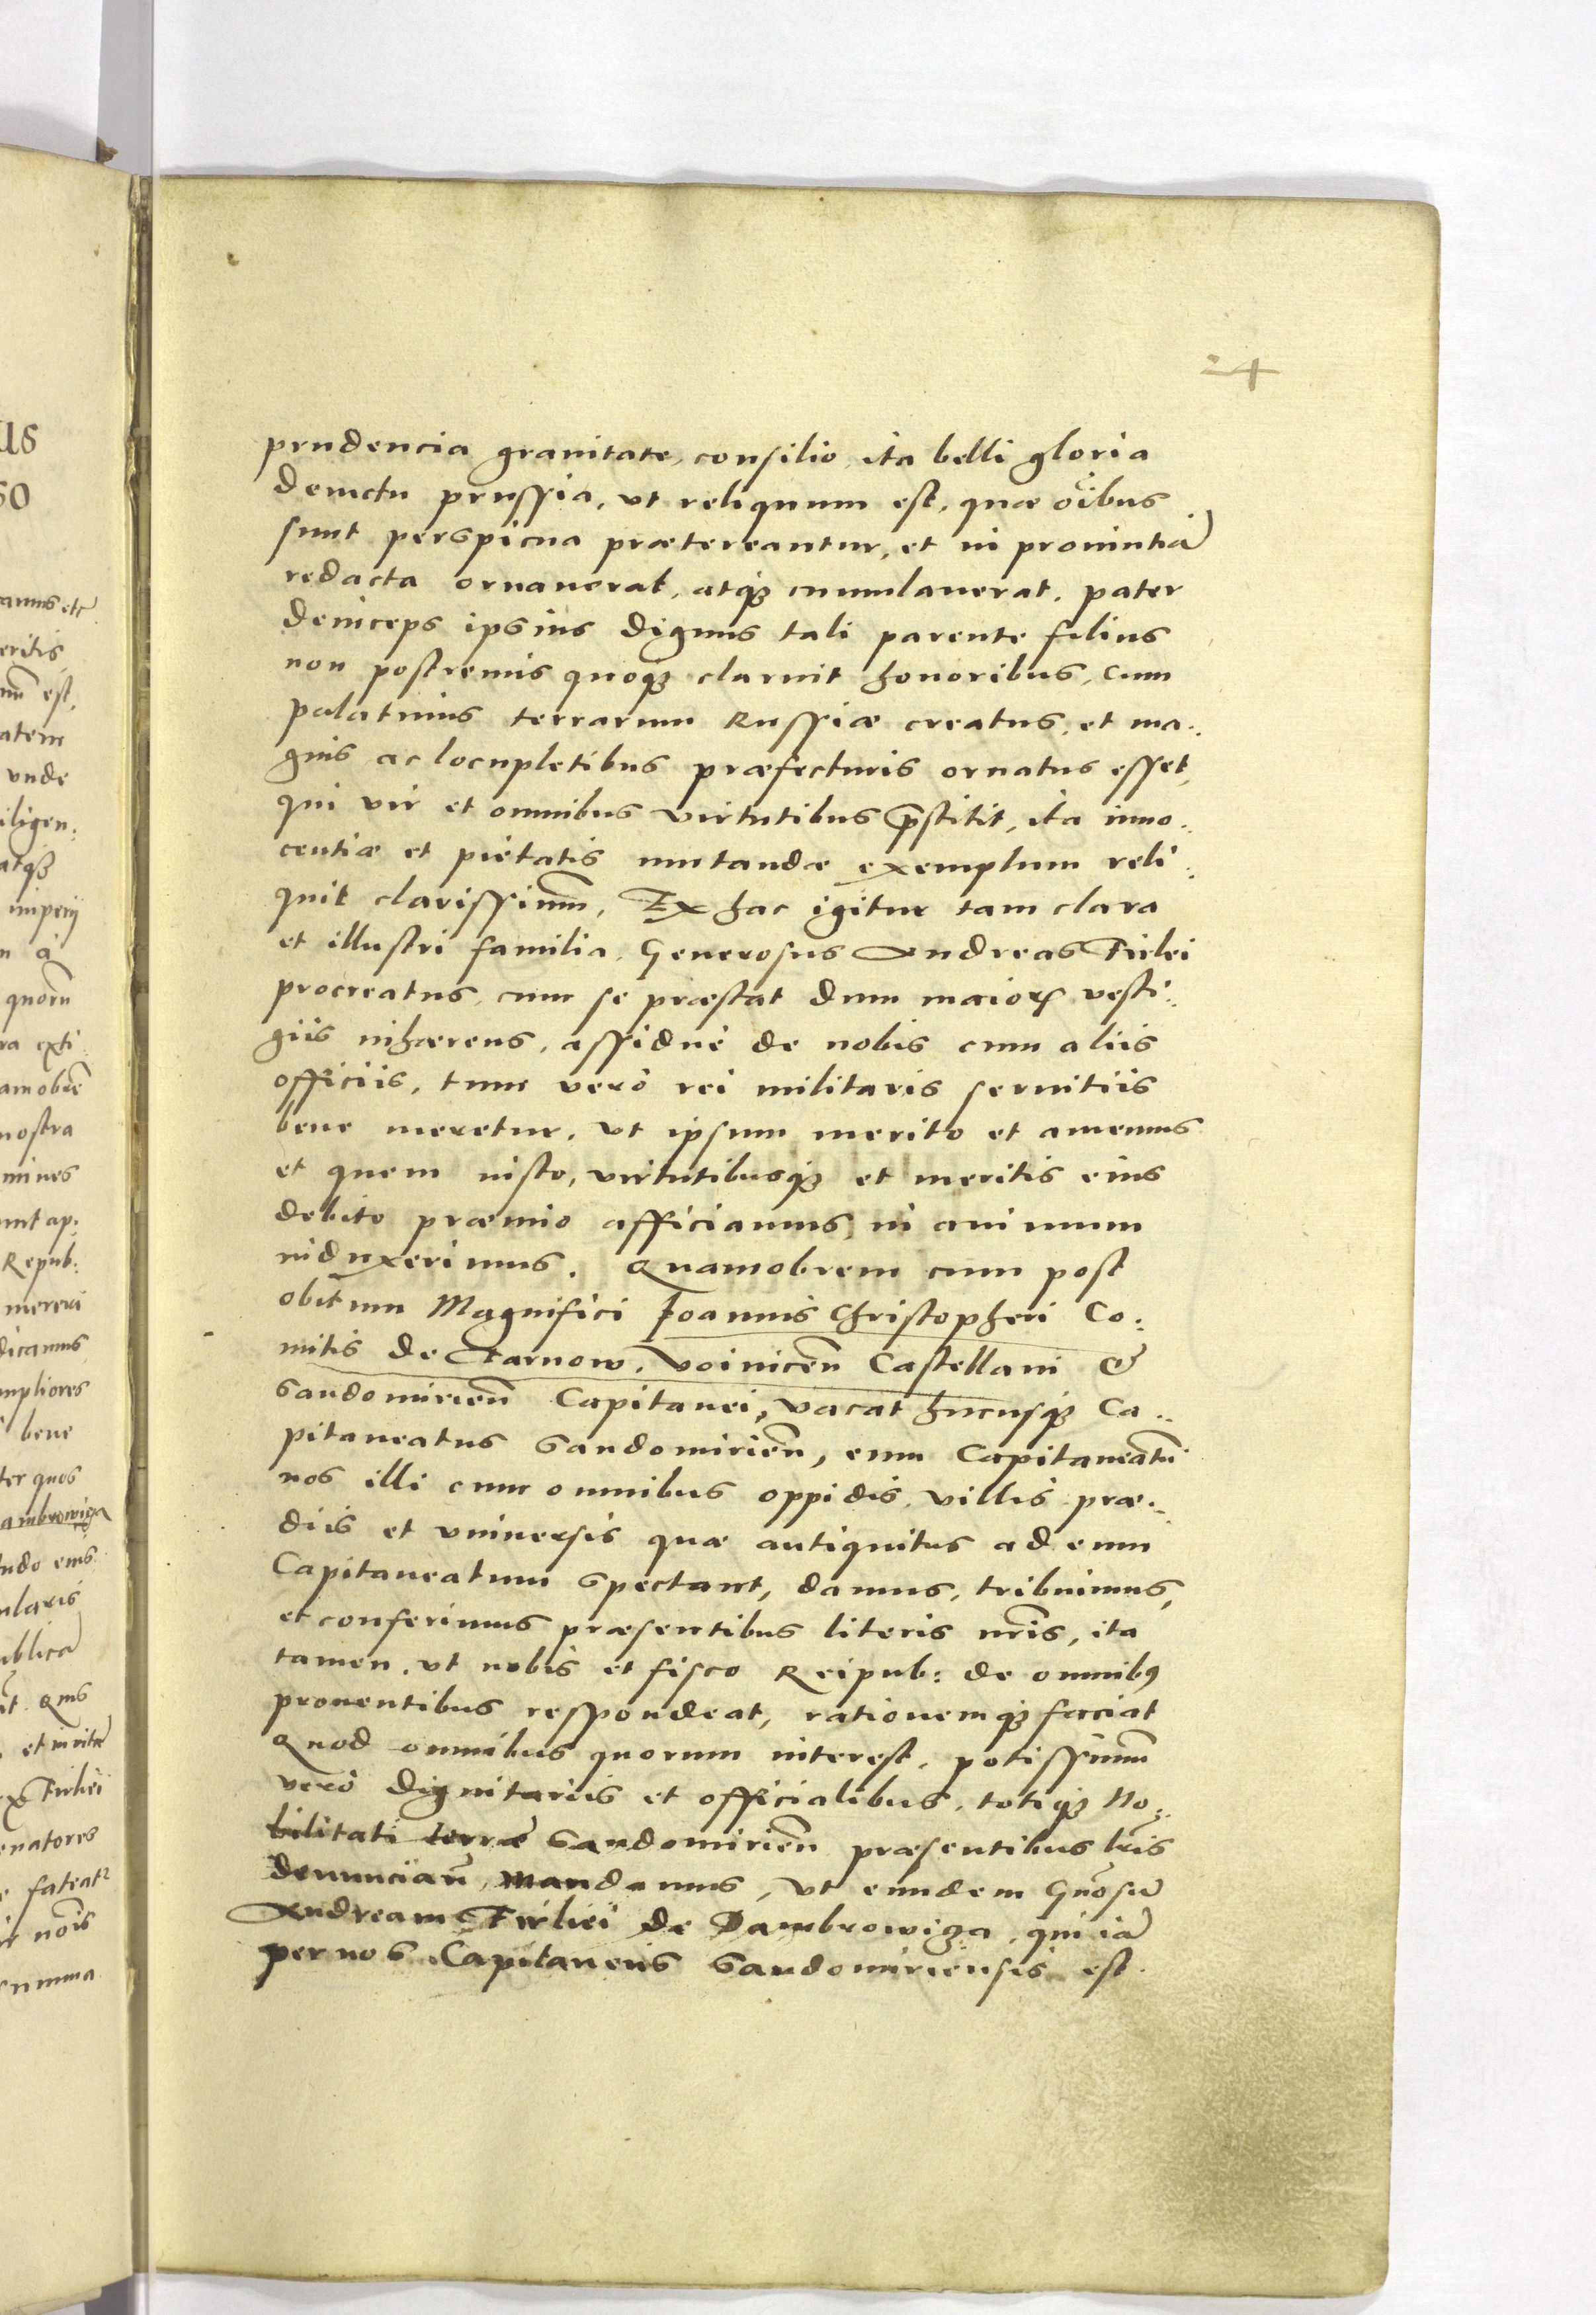 24
prudencia grauitate, consilio, ita belli gloria
deuicta prussia, vt reliquum est, quae oĩbus
sunt perspicua praetereantur, et in prouintiã
redacta ornauerat, atq₃ cumulauerat. pater
deinceps ipsius dignus tali parente filius
non postremis quoq₃ claruit honoribus, cum
palatinus terrarum Russiae creatus, et ma:
gnis ac locupletibus praefecturis ornatus esset,
qui vir et omnibus virtutibus p̃stitit, ita inno:
centiae et pietatis imitandae exemplum reli:
quit clarissimũ, Ex hac igitur tam clara
et illustri familia, Generosus Andreas Firlei
procreatus, cum se praestat dum maioꝝ vesti:
giis inhaerens, assiduè de nobis cum aliis
officiis, tum verò rei militaris seruitiis
bene meretur, vt ipsum merito et amemus
et quem iusto, virtutibusq₃ et meritis eius
debito praemio afficiamus, in animum
induxerimus. Quamobrem cum post
obitum Magnifici Joannis Christopheri Co:
mitis de Tarnow, Voinicen̄ Castellani &
Sandomirien̄ Capitanei, vacat hucusq₃ Ca:
pitaneatus Sandomirien̄, eum Capitaneatũ
nos illi cum omnibus oppidis, villis, prae:
diis et vniuersis quae antiquitus ad eum
Capitaneatum spectant, damus, tribuimus,
et conferimus praesentibus literis nr̃is, ita
tamen, vt nobis et fisco Reipub: de omnibꝰ
prouentibus respondeat, rationemq₃ faciat
Quod omnibus quorum interest, potissimũ
verò dignitariis et officialibus, totiq₃ No:
bilitati terrae Sandomirien̄ praesentibus lr̃is
denunciam̃, mandamus, vt eundem Gñosũ
Andream Firlei de Dambrowiza, qui iã
per nos Capitaneus Sandomiriensis est